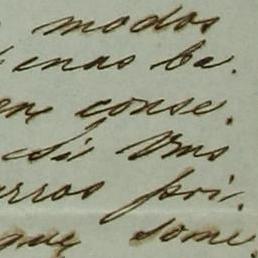 modos
enas ba.
en conse.
Si Vms
rros poi.
que some.